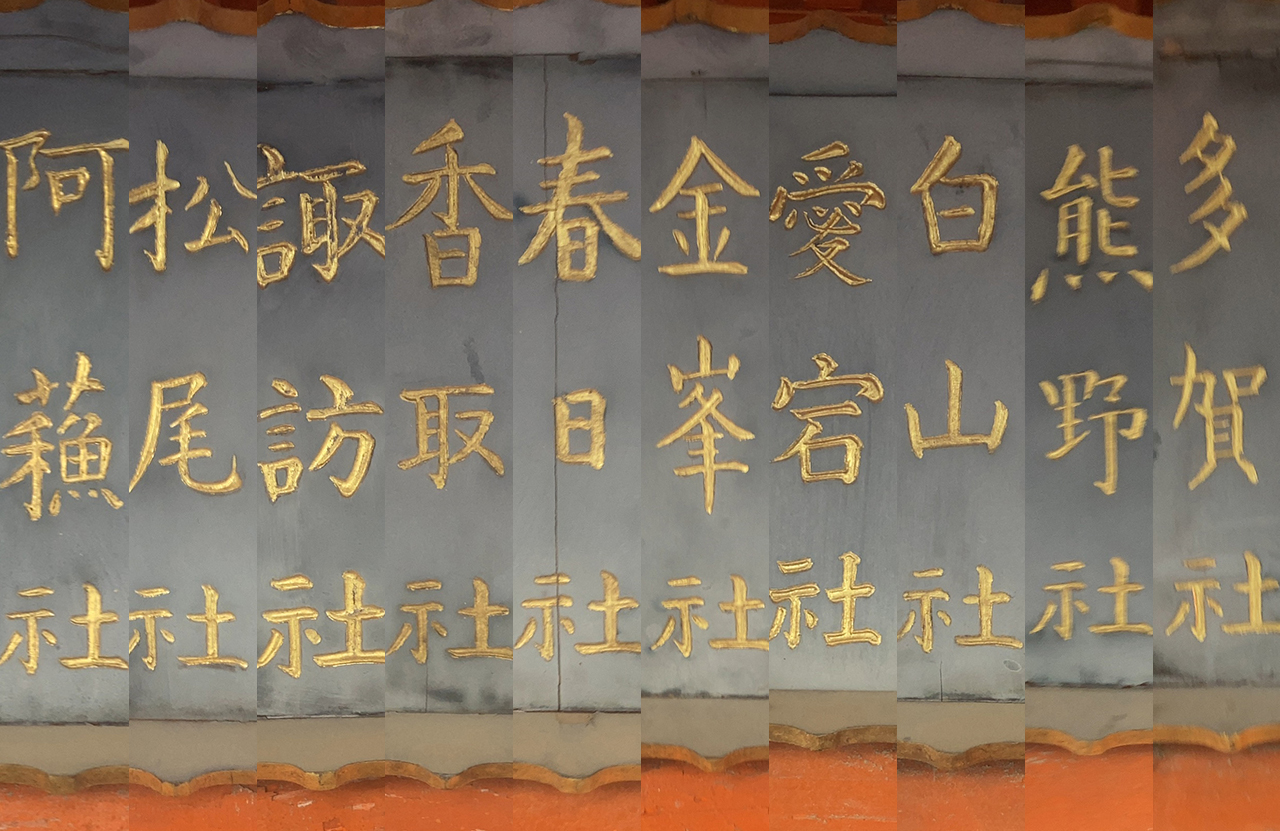 多賀社
熊野社
白山社
愛宕社
金峯社
春日社
香取社
諏訪社
松尾社
阿蘓社